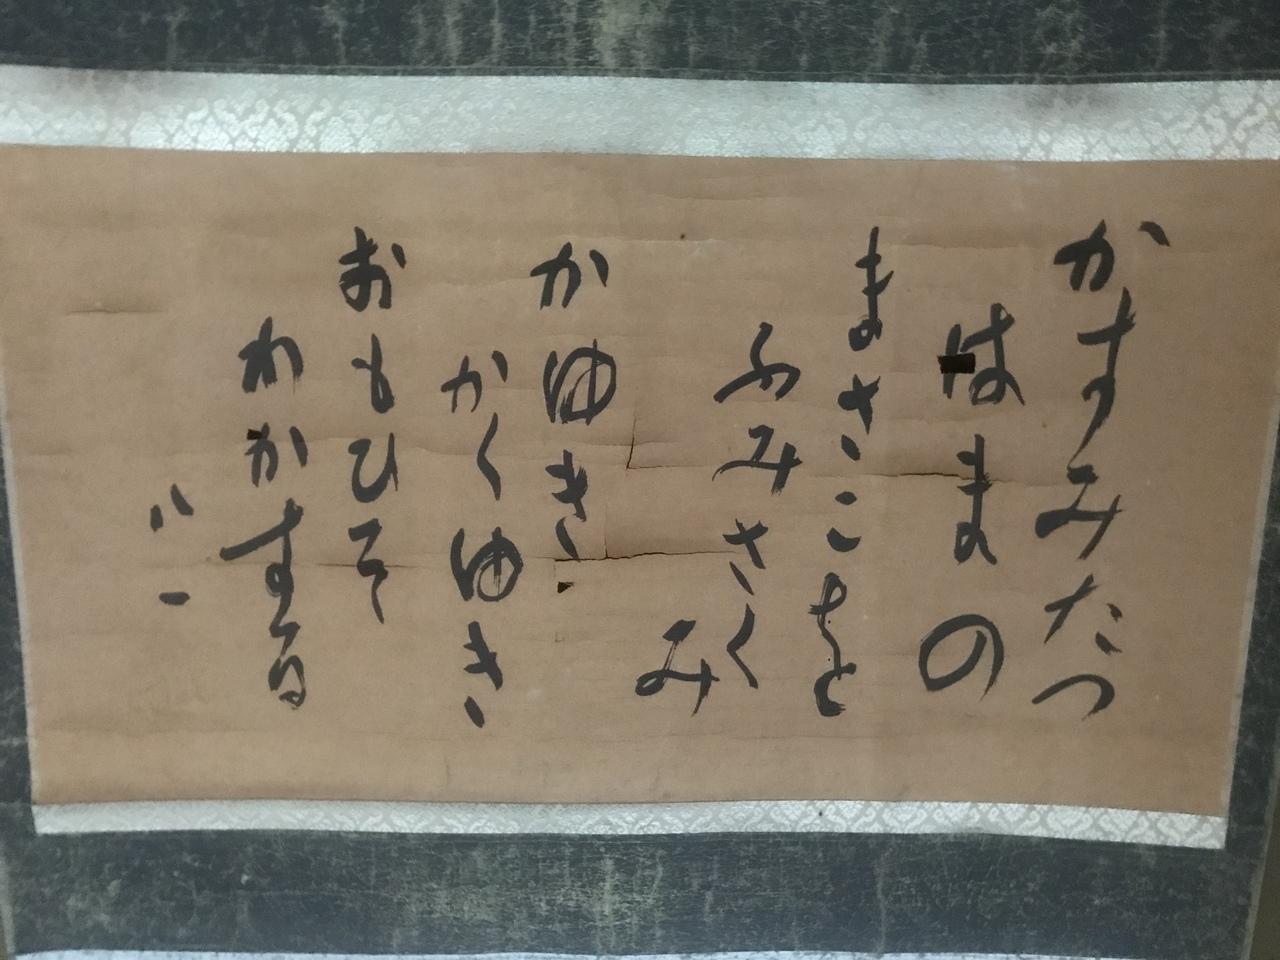 かすみたつ
はまの
まさこを
ふみさく
み
かゆき
かくゆき
おもひそ
わかする
八一